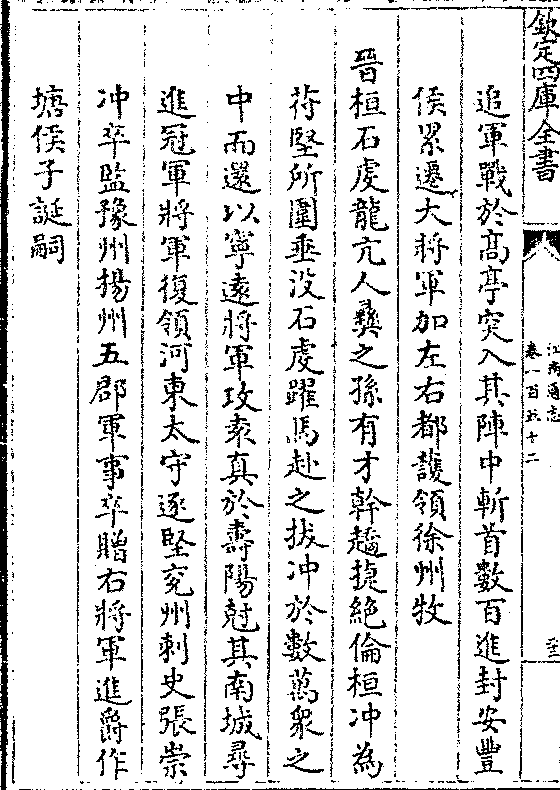 欽定四庫全書
江南通志
卷一百五十二
追軍戰於髙亭突入其陣中斬首數百進封安豐
侯累遷大將軍加左右都護領徐州牧
晉桓石虔龍亢人彝之孫有才幹趫捷絶倫桓冲為
苻堅所圍垂没石虔躍馬赴之拔冲於數萬衆之
中而還以寧遠將軍攻袁真於壽陽尅其南城尋
進冠軍將軍復領河東太守逐堅兖州刺史張崇
冲卒監豫州揚州五郡軍事卒贈右將軍進爵作
塘侯子誕嗣